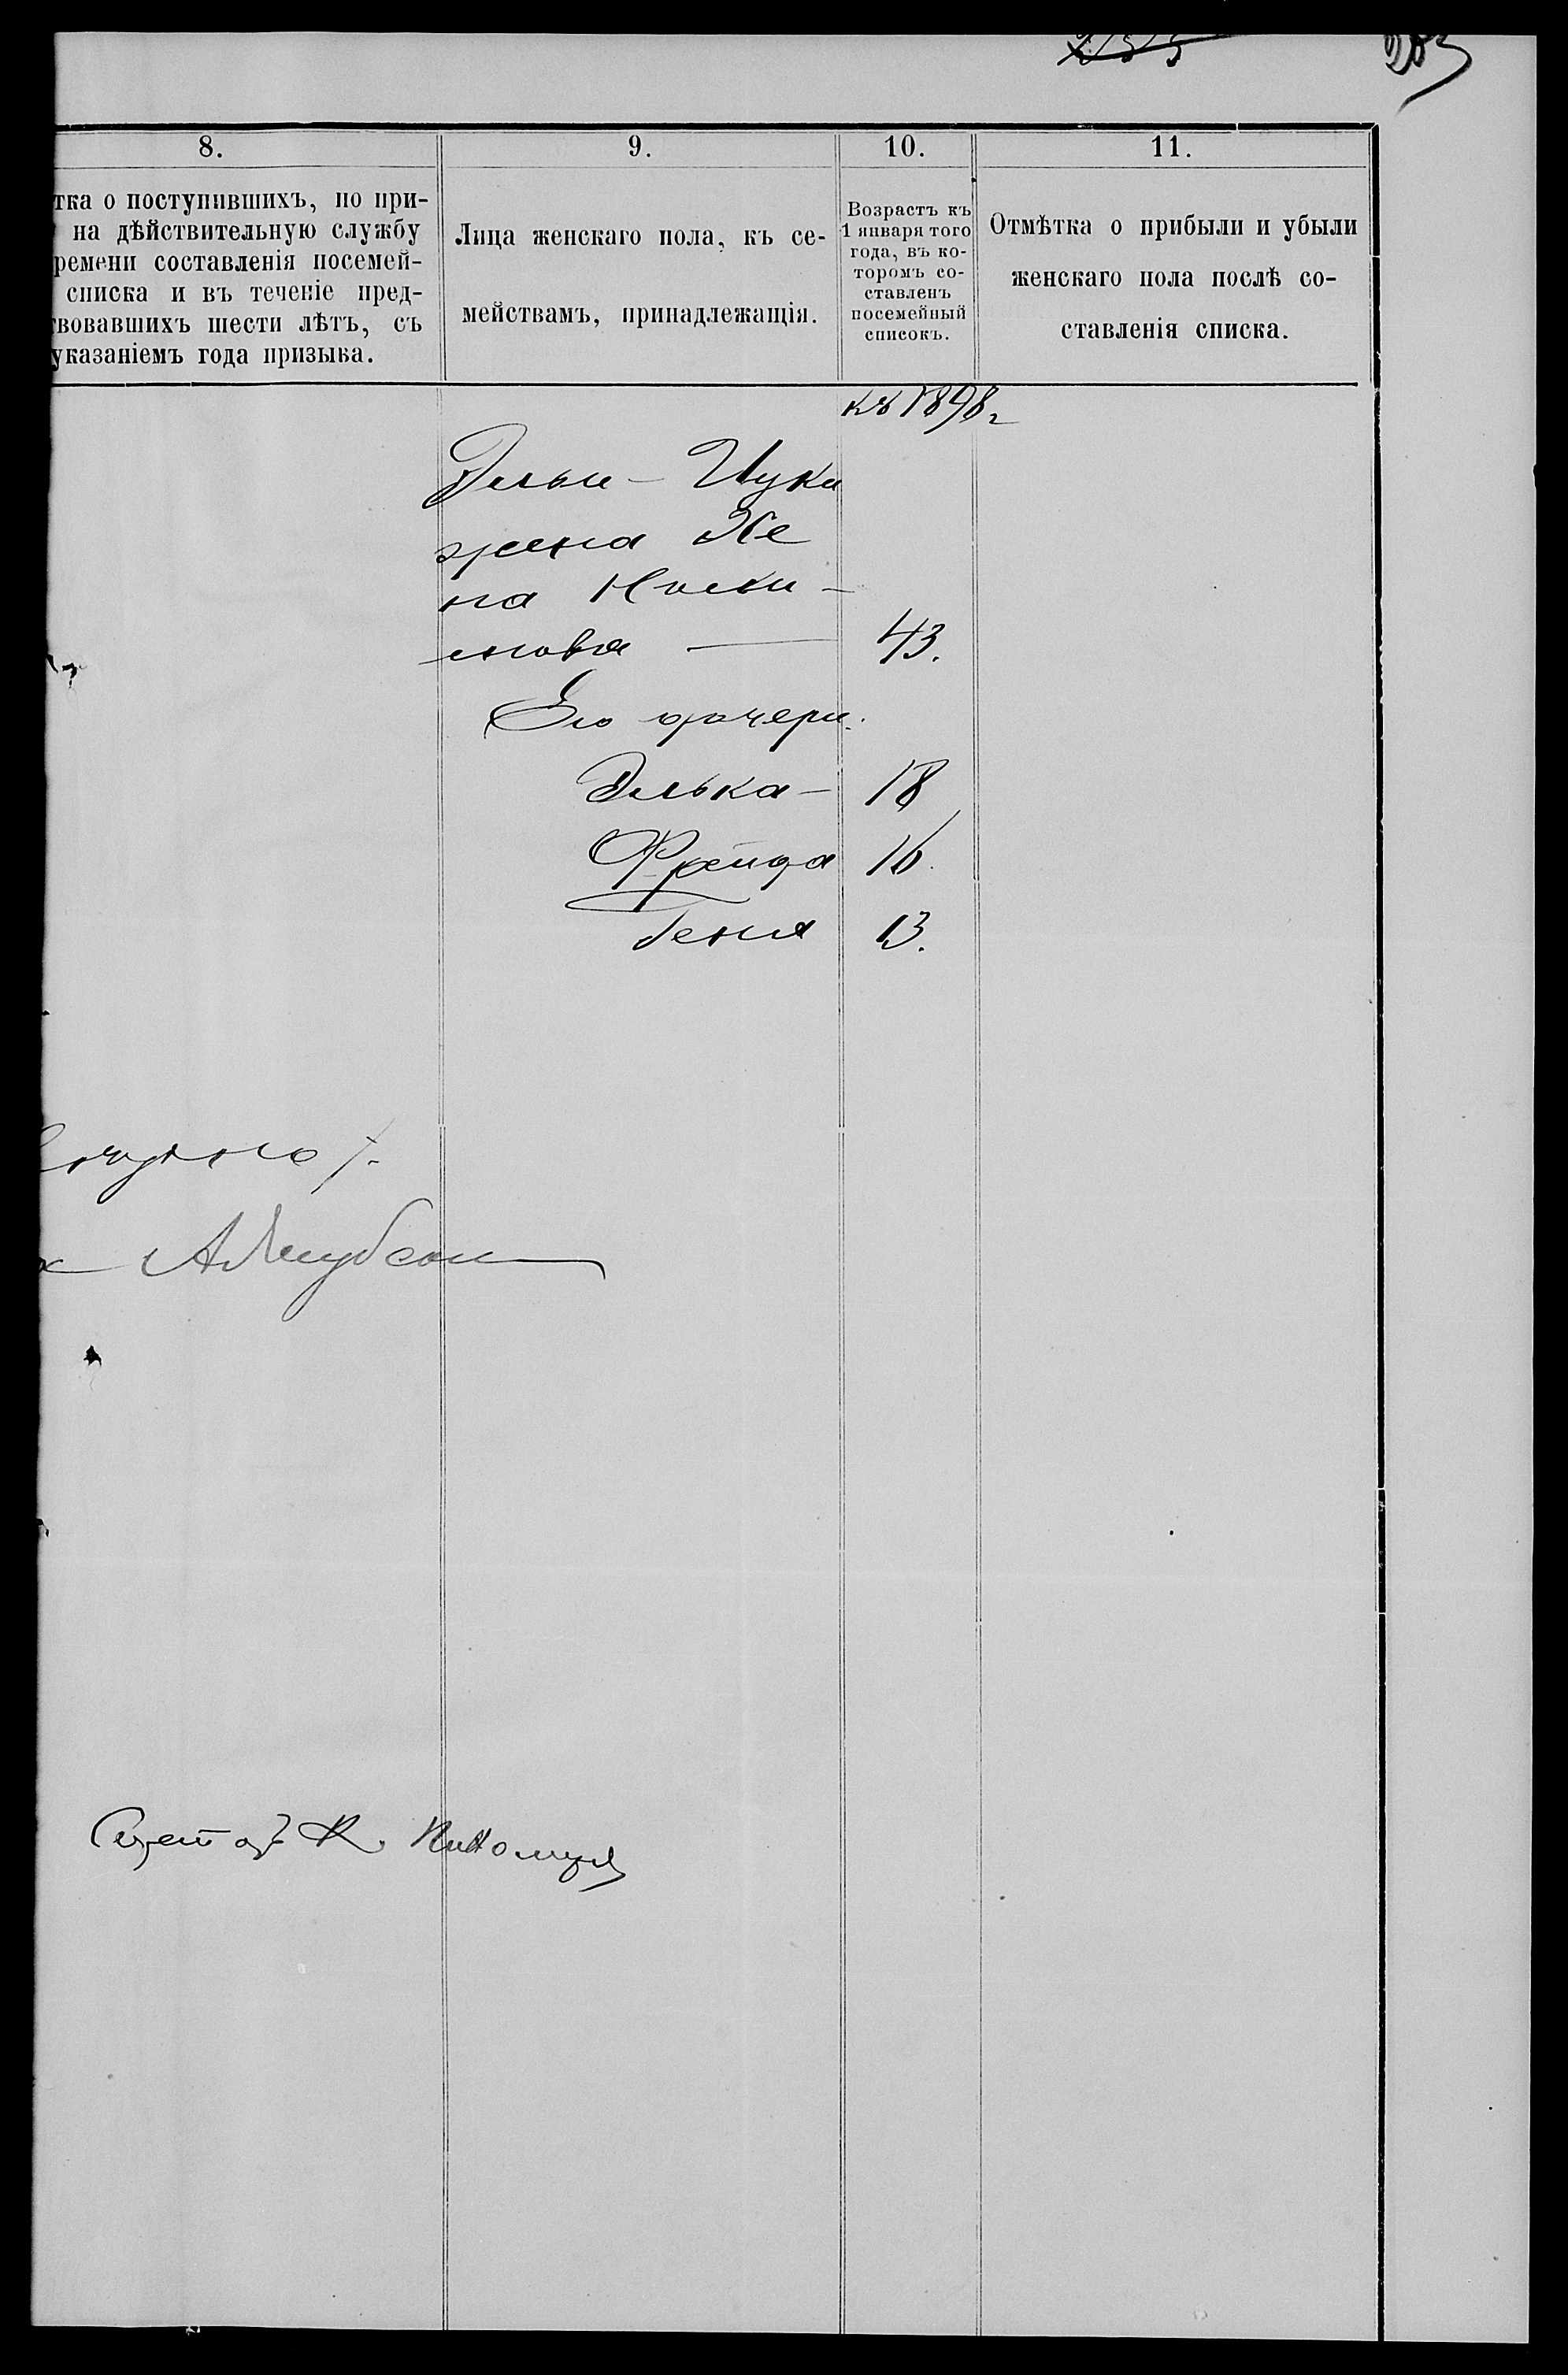 283
8.
9.
10.
11.
тка о поступившихъ, по при-
на дѣйствительную службу
ремени составленія посемей-
списка и въ теченіе пред-
твовавшихъ шести лѣтъ, съ
указаніемъ года призыва.
Лица женскаго пола, къ се-
мействамъ, принадлежащія.
Возрастъ къ
1 января того
года, въ ко-
торомъ со-
ставленъ
посемейный
списокъ.
Отмѣтка о прибыли и убыли
женскаго пола послѣ со-
ставленія списка.
къ 1898 г
жена Хе
на
мова — 43.
Его дочери.
Элька — 18
Фрейда 16.
Геня 13.